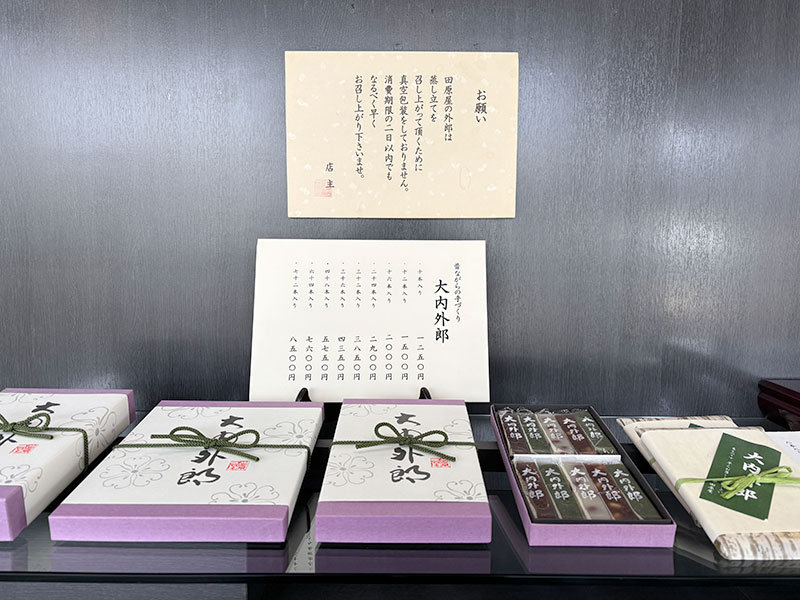 お願い
田原屋の外郎は
蒸し立てを
召し上がって頂くために
真空包装をしておりません。
消費期限の二日以内でも
なるべく早く
お召し上がり下さいませ。
店主
昔ながらの手づくり
大内外郎
・十本入り 一二五〇円
・十二本入り 一五〇〇円
・十六本入り 二〇〇〇円
・二十四本入り 二九〇〇円
・三十二本入り 三八五〇円
・三十六本入り 四三五〇円
・四十八本入り 五七五〇円
・六十四本入り 七六〇〇円
・七十二本入り 八五〇〇円
大内外郎
大内外郎
大内外郎
大内外郎
大内外郎
大内外郎
大内外郎
大内外郎
大内外郎
大内外郎
大内外郎
大内外郎
大内外郎